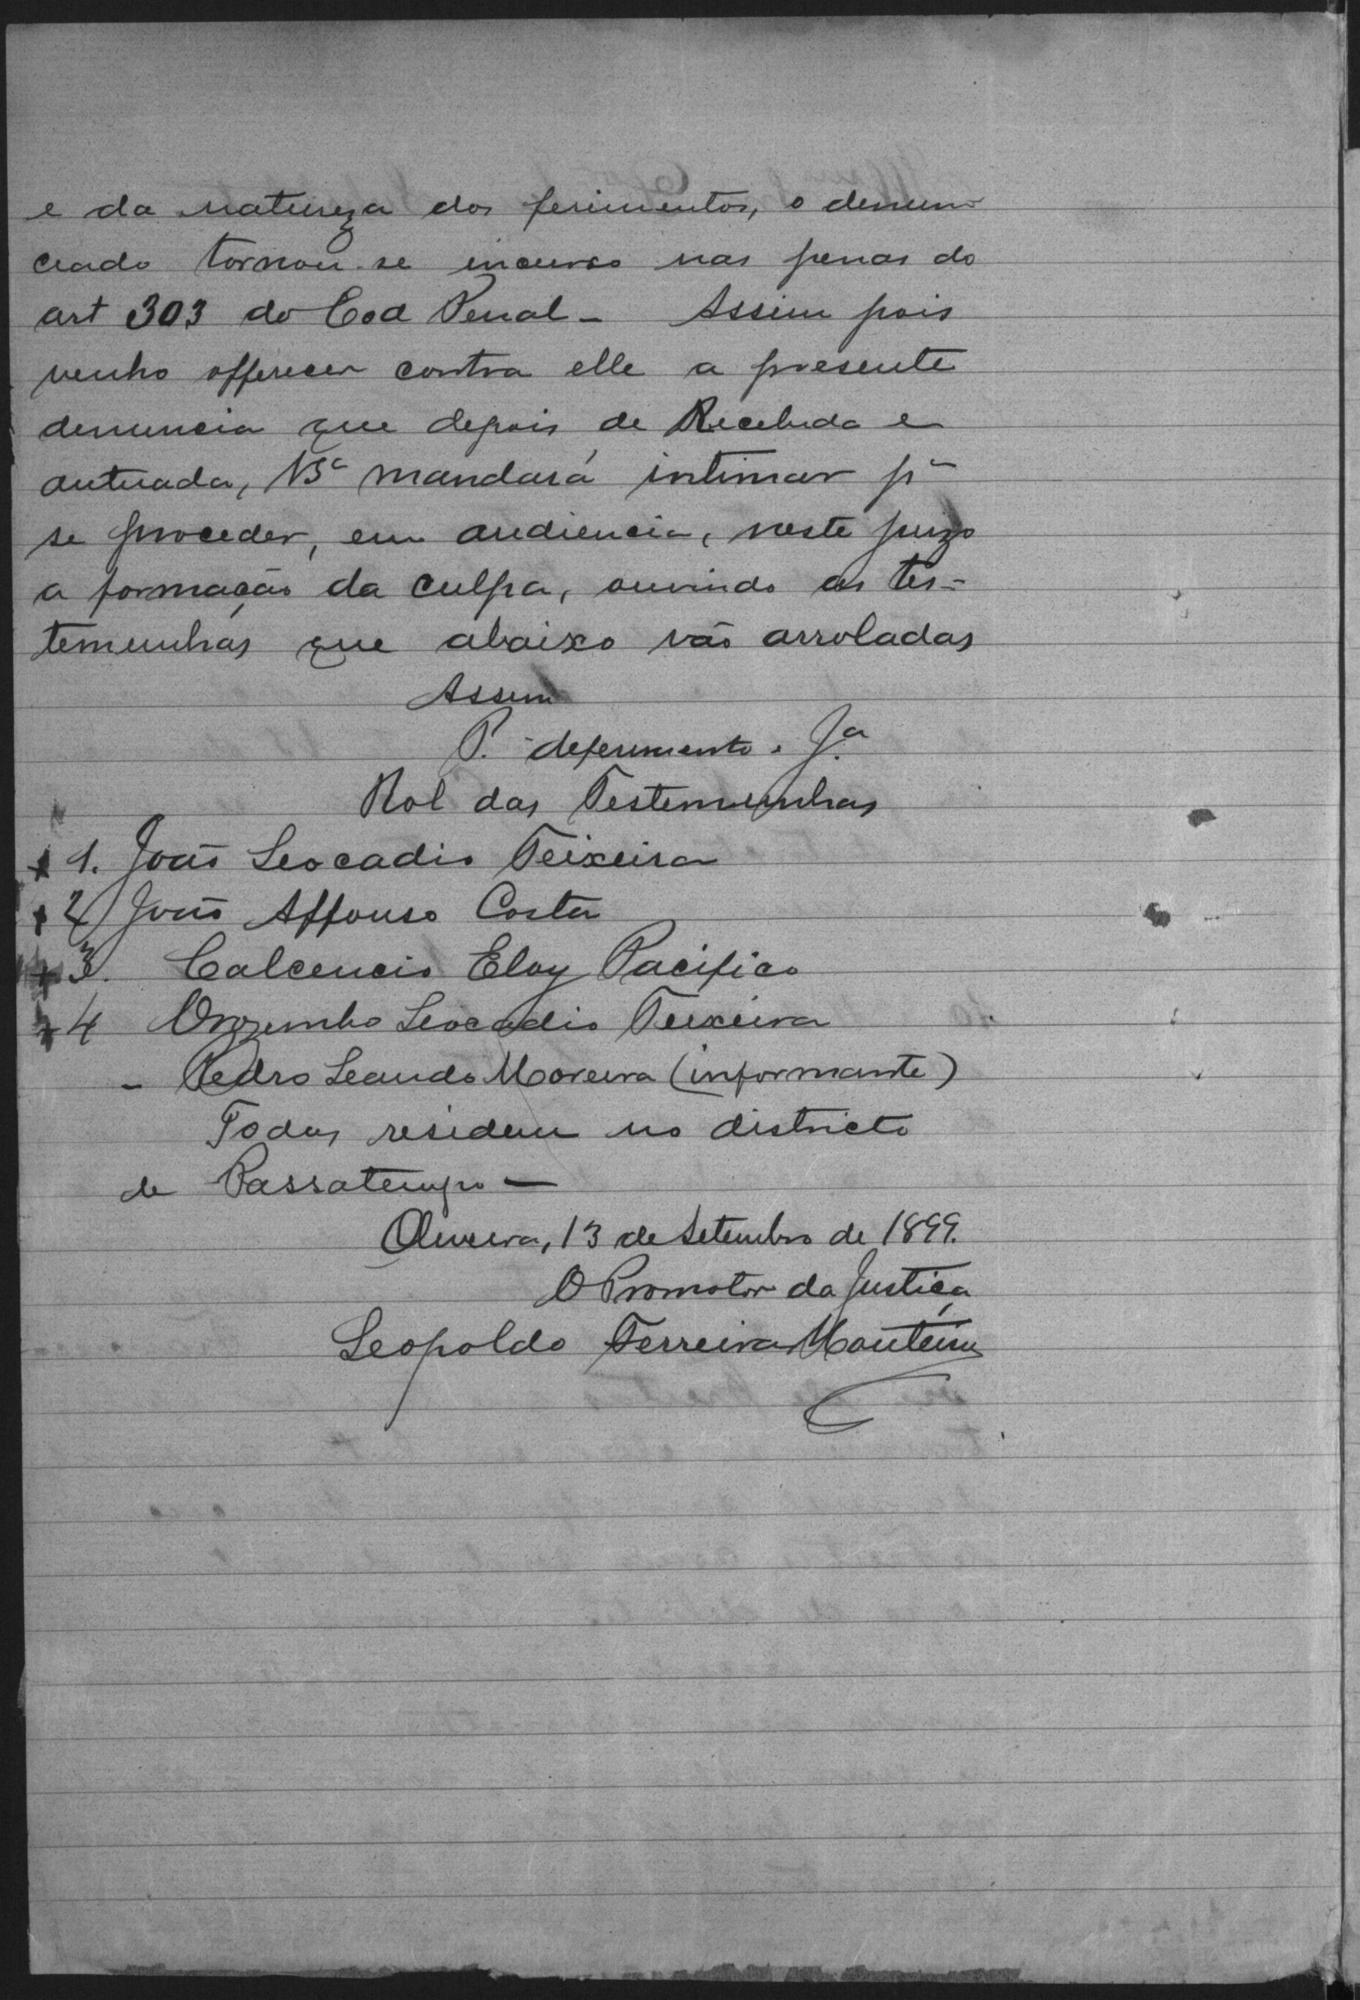 e da natureza dos ferimentos, o denun-
ciado tornou-se incurso nas penas do
art 303 do Cod Penal - Assim pois
venho offerecer contra elle a presente
denuncia que depois de Recebida e
autuada, VSª mandará intimar pª
se proceder, em audiencia, neste juizo
a formação da culpa, ouvindo as tes-
temunhas que abaixo vão arroladas
Assim
P. deferimento. Jª
Rol das Testemunhas
+ 1. João Leocadio Teixeira
+ 2 João Affonso Costa
+ 3. Calcencio Eloy Pacifico
+ 4 Orozimbo Leocadio Teixeira
- Pedro Leando Moreira (informante)
Todas residem no districto
de Passatempo -
Oliveira, 13 de Setembro de 1899.
O Promotor da Justiça
Leopoldo Ferreira Monteiro